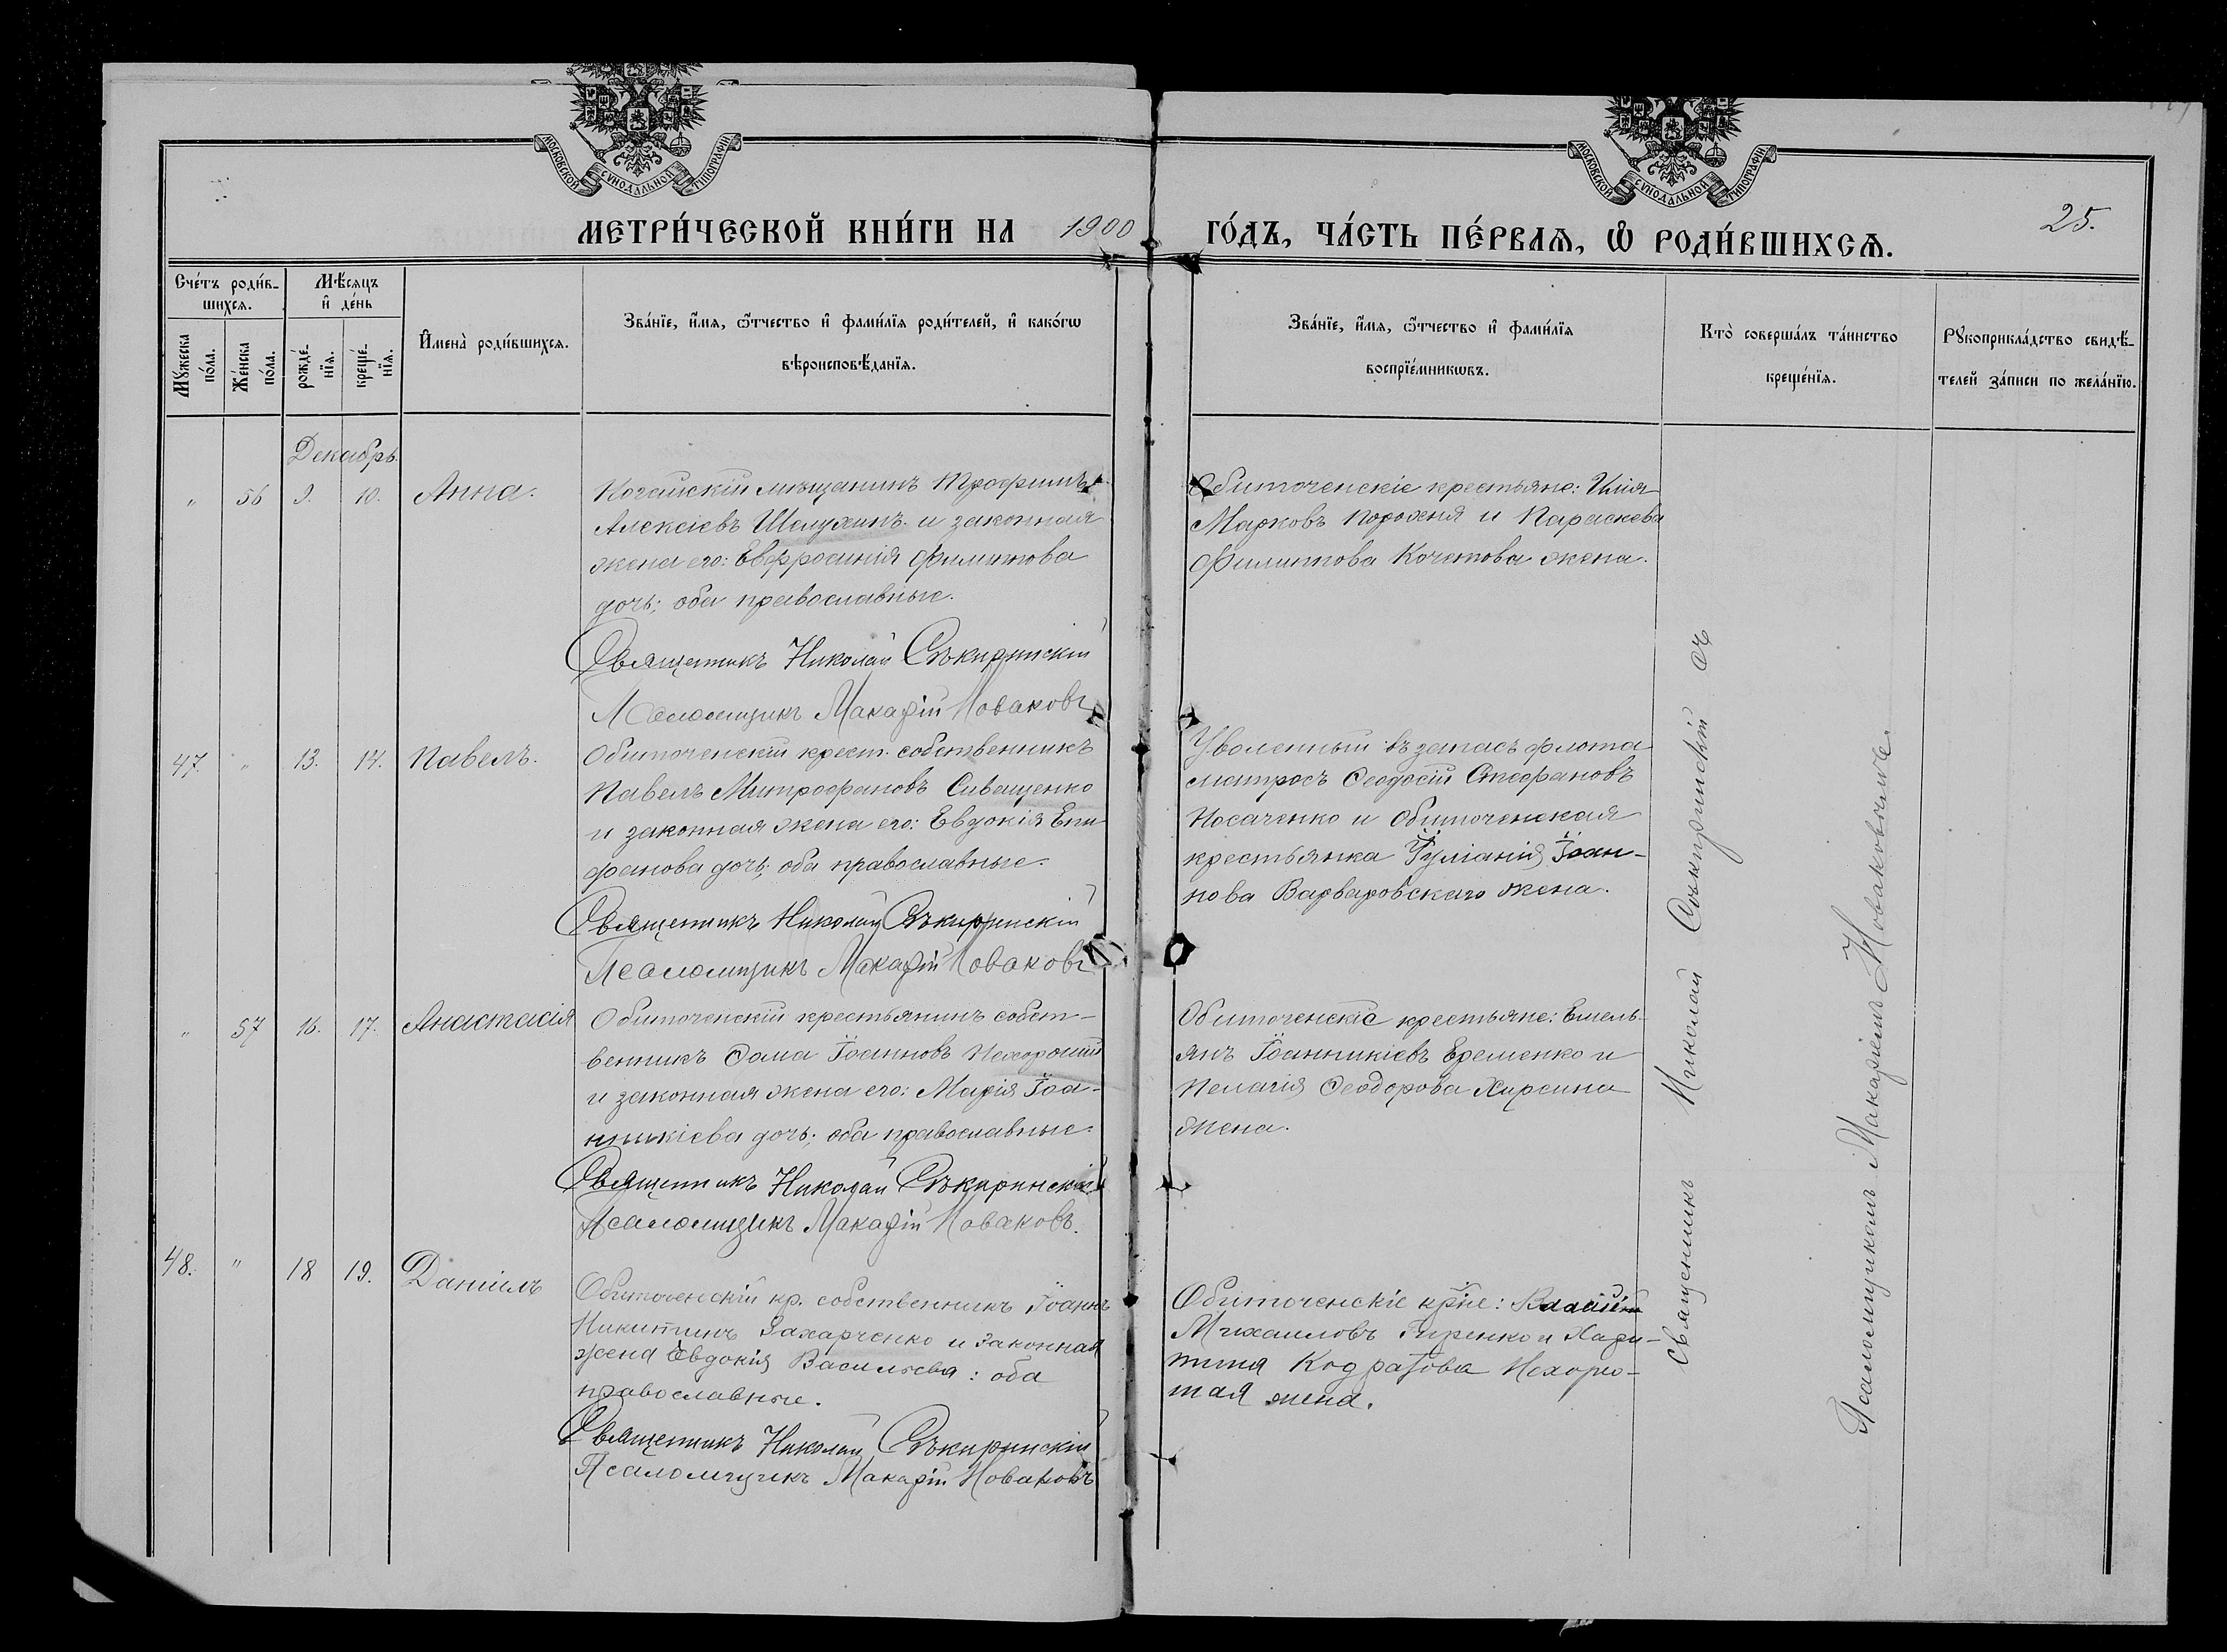 МОСКОВСКОЙ СѴНОДАЛЬНОЙ ТИПОГРАФІИ
МОСКОВСКОЙ СѴНОДАЛЬНОЙ ТИПОГРАФІИ
МЕТРИ́ЧЕСКОЙ КНИ́ГИ НА 1900 ГО́ДЪ, ЧА́СТЬ ПЕ́РВАѦ, Ѽ РОДИ́ВШИХСѦ.
25.
Сче́тъ роди́в-
шихсѧ.
Мꙋ́жеска по́ла.
Же́нска по́ла.
Мѣ́сѧцъ
и҆ де́нь
рожде́-
нїѧ.
креще́-
нїѧ.
И҆мена̀ роди́вшихсѧ.
Зва́нїе, и҆́мѧ, ѻ҆́тчество и҆ фами́лїѧ роди́телей, и҆ како́гѡ
вѣроисповѣ́данїѧ.
Зва́нїе, и҆́мѧ, ѻ҆́тчество и҆ фами́лїѧ
воспрїе́мникѡвъ.
Кто̀ соверша́лъ та́инство
креще́нїѧ.
Рꙋкоприкла́дство свидѣ́-
телей за́писи по жела́нїю.
Декабрь.
" 56 9. 10. Анна.
Ногайскій мѣщанинъ Трофимъ
Алексіевъ Шелухинъ и законная
жена его: Евфросинія Филиппова
дочь; оба православные.
Священникъ Николай Сѣкиринскій
Псаломщикъ Макарій Новаковъ
Обиточенскіе крестьяне: Илія
Марковъ Порохня и Параскева
Филиппова Кочетова жена.
47. " 13. 14. Павелъ.
Обиточенскій крест. собственникъ
Павелъ Митрофановъ Сиващенко
и законная жена его: Евдокія Епи
фанова дочь; оба православные.
Священникъ Николай Сѣкиринскій
Псаломщикъ Макарій Новаковъ
Уволенный въ запасъ флота
матросъ Ѳеодосій Стефановъ
Носаченко и Обиточенская
крестьянка Іуліанія Іоан-
нова Варваровскаго жена.
" 57 16. 17. Анастасія
Обиточенскій крестьянинъ собст-
венникъ Ѳома Іоанновъ Нехорошій
и законная жена его: Марія Іоа-
нникіева дочь; оба православные.
Священникъ Николай Сѣкиринскій
Псаломщикъ Макарій Новаковъ.
Обиточенскіе крестьяне: Емель-
янъ Іоанникіевъ Еременко и
Пелагія Ѳеодорова Хирсина
жена.
48. " 18 19. Даніилъ
Обиточенскій кр. собственникъ Іоаннъ
Никитинъ Захарченко и законная
жена Евдокія Васильева: оба
православные.
Священникъ Николай Сѣкиринскій
Псаломщикъ Макарій Новаковъ
Обиточенскіе кр҃не:
Михаиловъ Гиренко и Хари-
тина Кодратова Нехоро-
шая жена.
Священникъ Николай Сѣкиринскій съ
Псаломщикомъ Макаріемъ Новаковымъ.